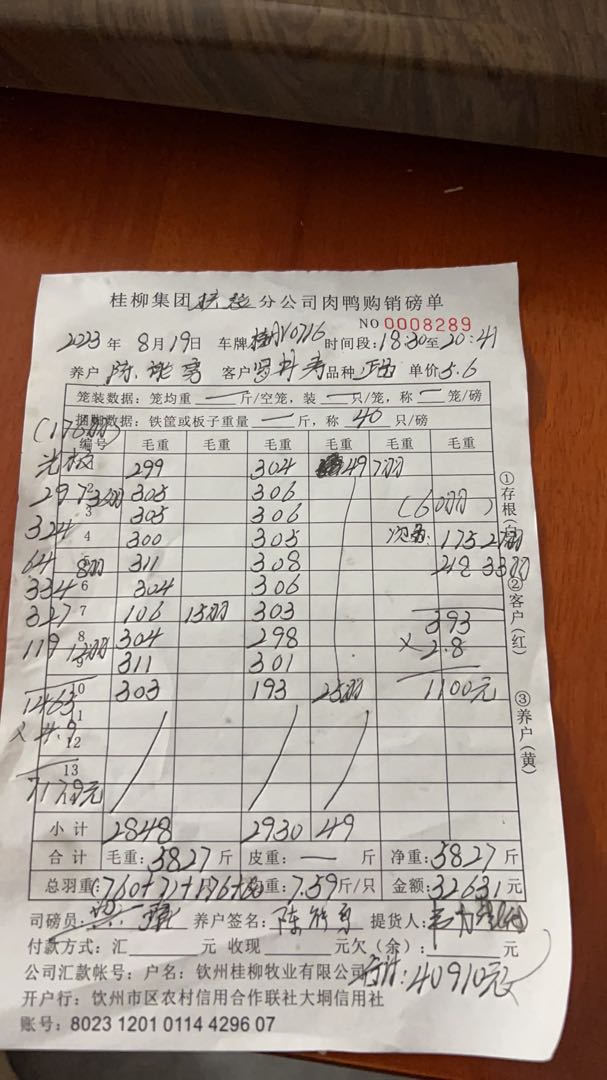 桂柳集团 分公司肉鸭购销磅单
NO 0008289
2023 年 8 月 19 日 车牌 桂AY0716 时间段: 18:30至20:41
养户 陈 客户 品种 单价 5.6
笼装数据: 笼均重 一 斤/空笼, 装 一 只/笼, 称 一 笼/磅
捆脚数据: 铁筐或板子重量 一 斤, 称 40 只/磅
编号 毛重 毛重 毛重 毛重 毛重 毛重
299 304 49 7羽
297 2 305 306
324 3 305 306 (60羽)
4 300 305 175 27羽
64 8羽 5 311 308 218 33羽
334 6 304 306
327 7 106 15羽 303 393
119 12羽 8 304 298 ×2.8
9 311 301
1463 10 303 193 25羽 1100元
11
×4.9 12
13
7179元 14
小计 2848 2930 49
合计 毛重: 5827 斤 皮重: 一 斤 净重: 5827 斤
总羽重: 760+71+176+60 重: 7.59 斤/只 金额: 32631 元
司磅员: 养户签名: 陈 提货人:
付款方式: 汇 元 收现 元 欠(余): 元
公司汇款帐号: 户名: 钦州桂柳牧业有限公司 合计: 40910元
开户行: 钦州市区农村信用合作联社大垌信用社
账号: 8023 1201 0114 4296 07
①存根(白)
②客户(红)
③养户(黄)